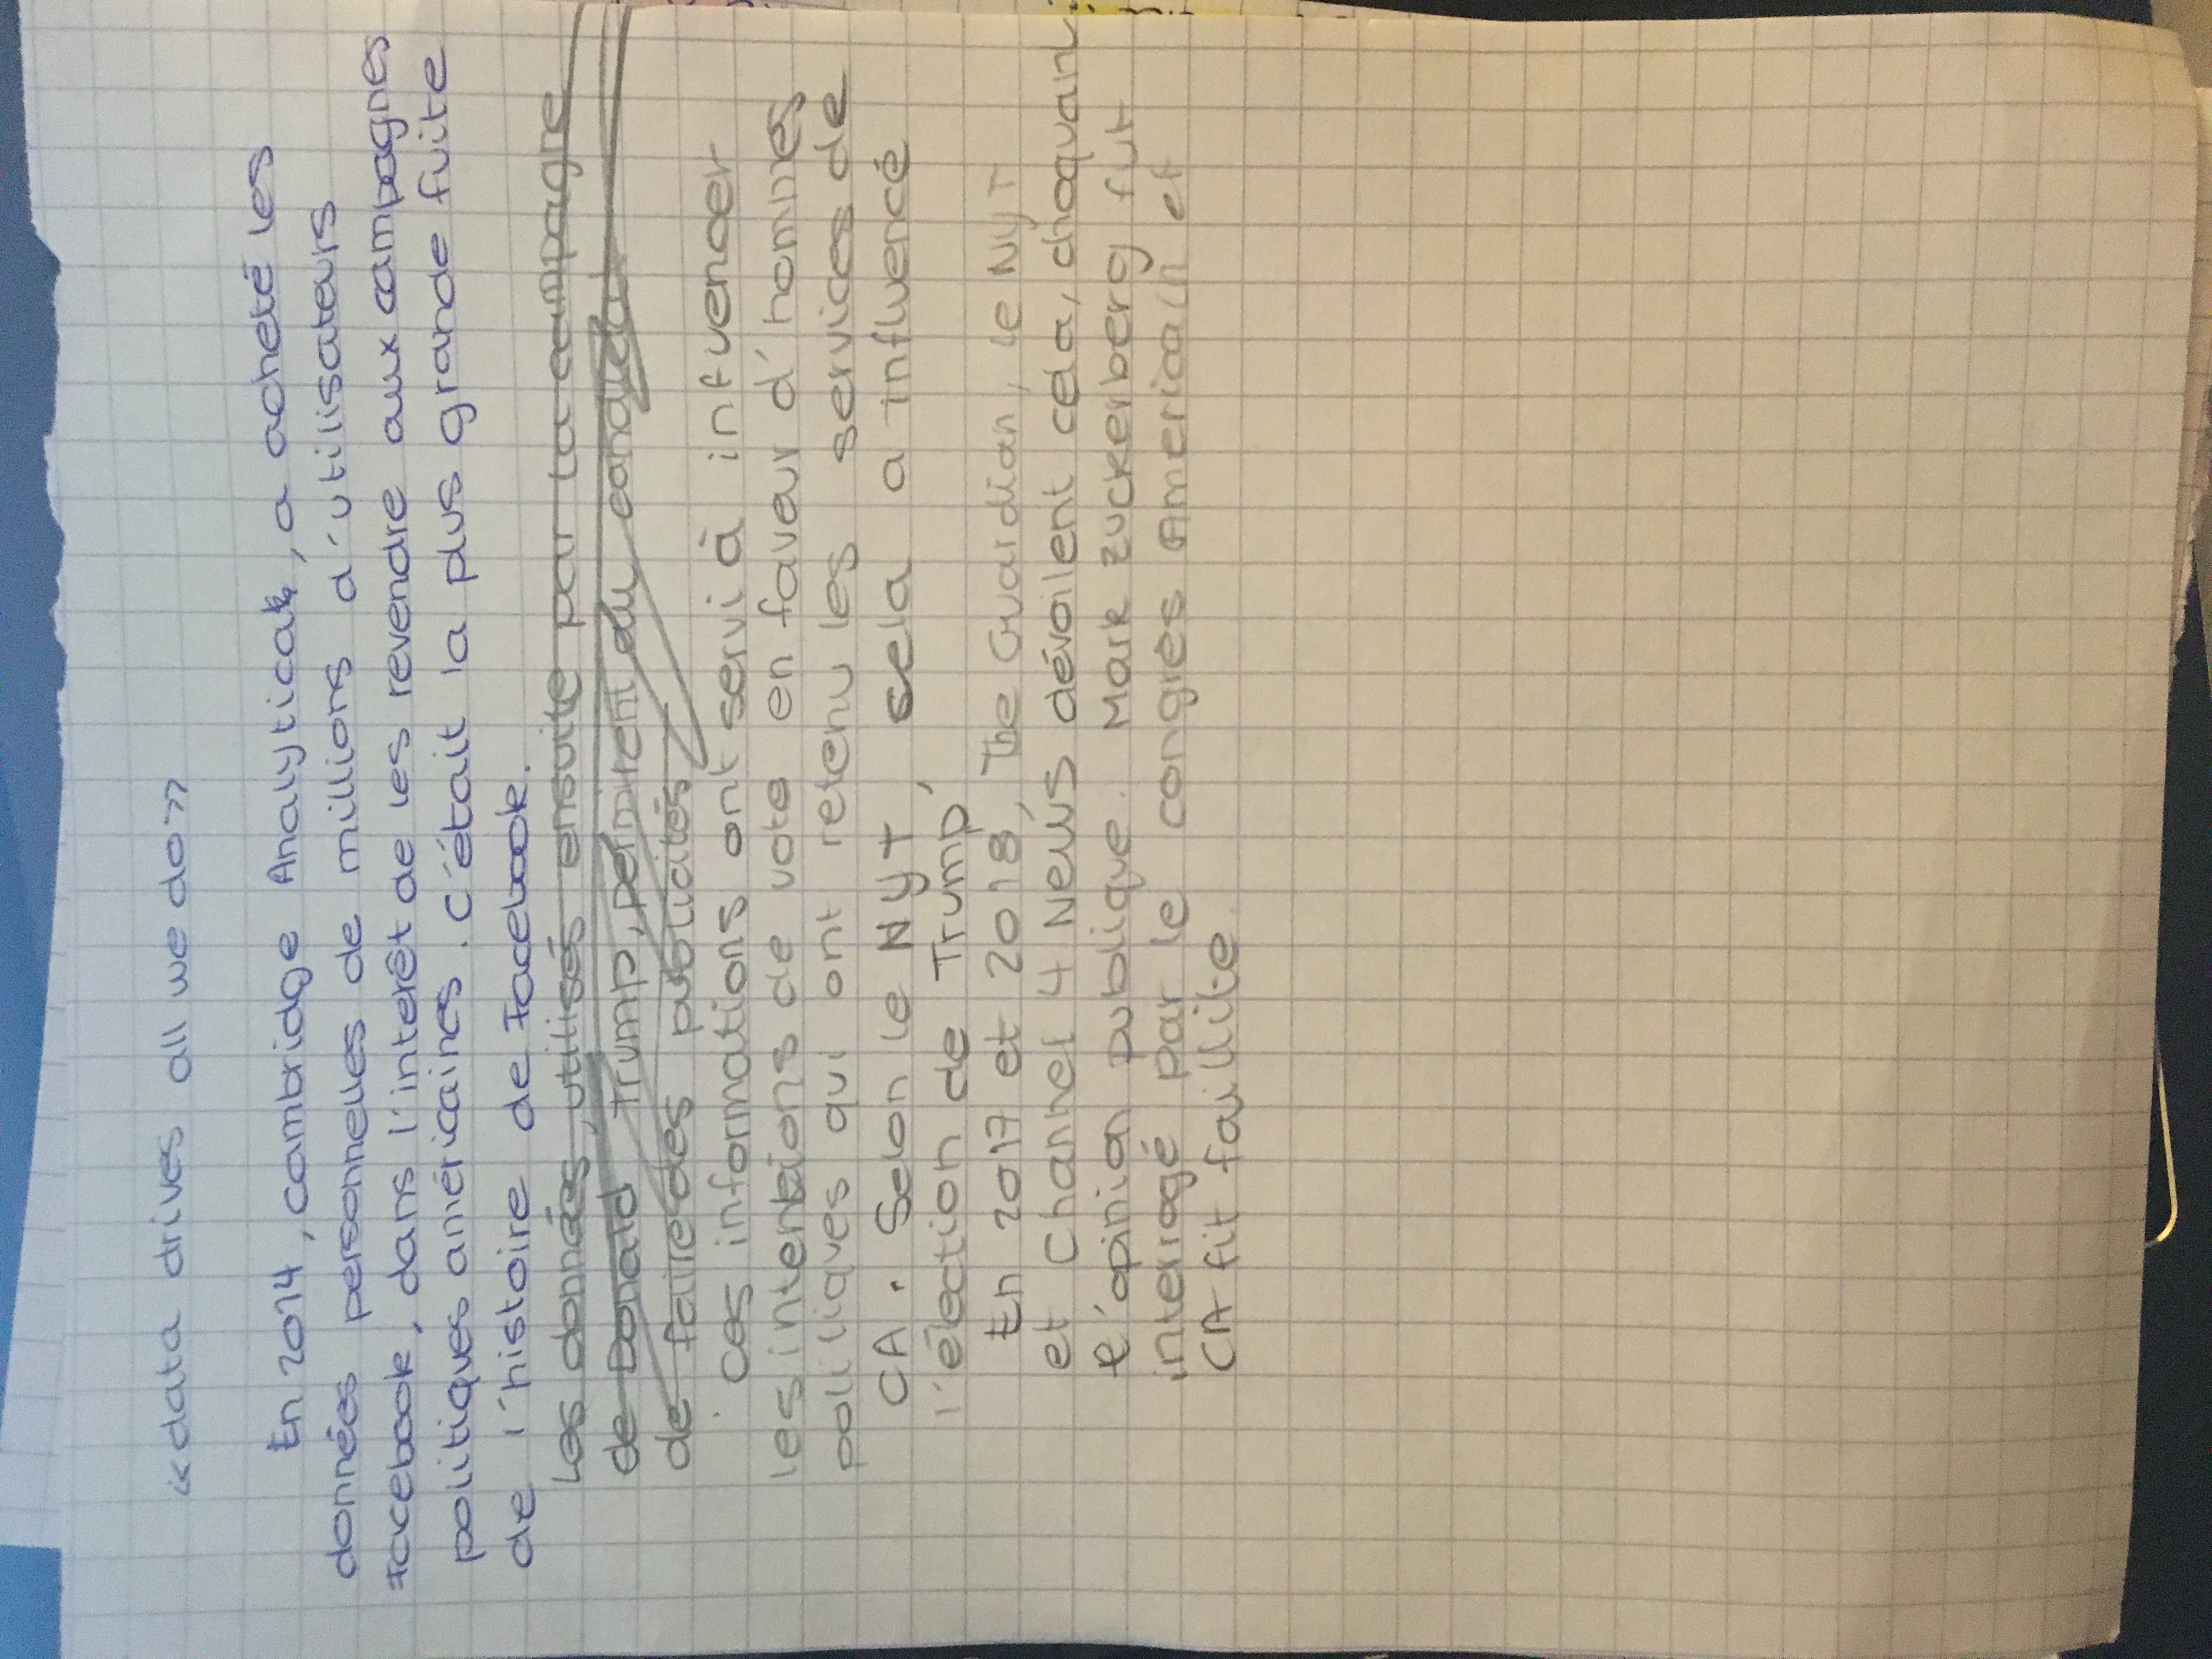 «data drives all we do»
En 2014, cambridge Analytica, a acheté les
données personnelles de millions d'utilisateurs
Facebook, dans l'interêt de les revendre aux campagnes
politiques américaines. C'était la plus grande fuite
de l'histoire de Facebook.
Les données, utilisés ensuite par la campagne
de Donald Trump, permirent au candidat
de faire des publicités
ces informations ont servi à infuencer
les intentions de vote en faveur d'hommes
politiques qui ont retenu les services de
CA. Selon le NYT, cela a influencé
l'élection de Trump
En 2017 et 2018, The Guardian, le NYT
et Channel 4 News dévoilent cela, choquant
l'opinion publique. Mark Zuckerberg fut
interrogé par le congrès Americain et
CA fit faillite.